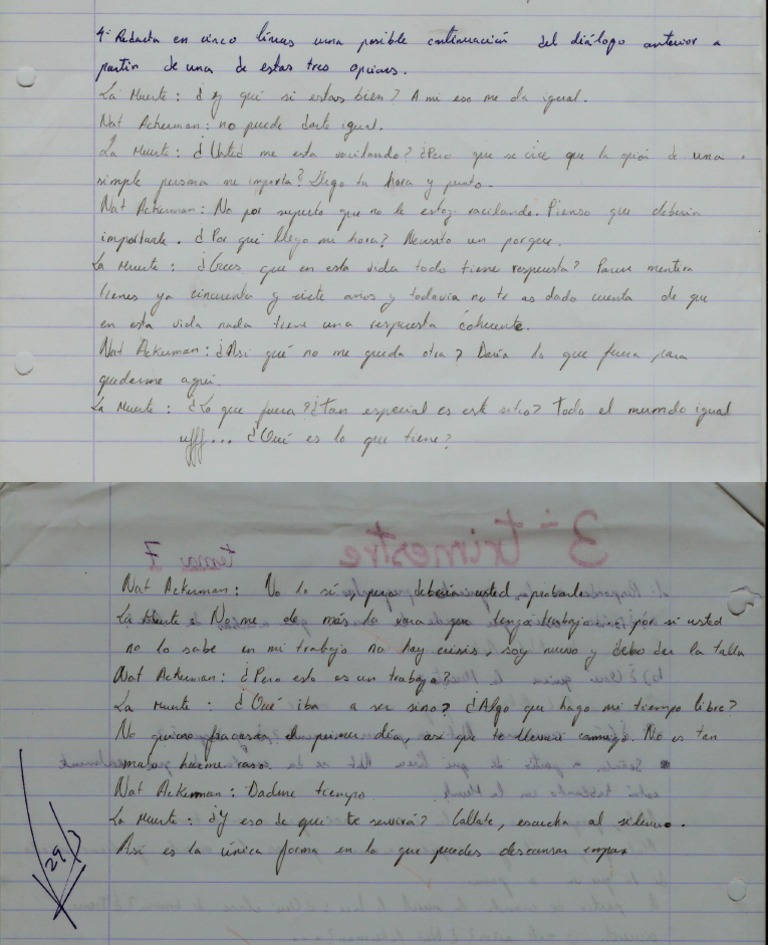 4- Redacta en cinco líneas una posible continuación del diálogo anterior a
partir de una de estas tres opciones.
La Muerte: ¿Y qué si estas bien? A mi eso me da igual.
Nat Ackerman: no puede darte igual.
La Muerte: ¿Usted me esta vacilando? ¿Pero que se cree que la opión de una
simple persona me importa? Llego tu hora y punto.
Nat Ackerman: No por supuesto que no le estoy vacilando. Pienso que deberia
importarle. ¿Por qué llego mi hora? Necesito un porque.
La Muerte: ¿Crees que en esta vida todo tiene respuesta? Parece mentira
tienes ya cincuenta y siete años y todavia no te as dado cuenta de que
en esta vida nada tiene una respuesta coherente.
Nat Ackerman: ¿Asi qué no me queda otra? Daria lo que fuera para
quedarme aqui.
La Muerte: ¿Lo que fuera? ¿Tan especial es este sitio? Todo el mundo igual
ufff... ¿Qué es lo que tiene?
3- trimestre
tema 7
Nat Ackerman: No lo sé pero deberia usted probarlo
La Muerte: No me de más la vara que tengo trabajo por si usted
no lo sabe en mi trabajo no hay crisis, soy nuevo y debo dar la talla
Nat Ackerman: ¿Pero esto es un trabajo?
La Muerte: ¿Qué iba a ser sino? ¿Algo que hago mi tiempo libre?
No quiero fracasar el primer dia, asi que te llevaré conmigo. No es tan
malo hacerme caso.
Nat Ackerman: Dadme tiempo
La Muerte: ¿Y eso de que te servirá? Callate, escucha al silencio.
Asi es la única forma en lo que puedes descansar empaz
29/3